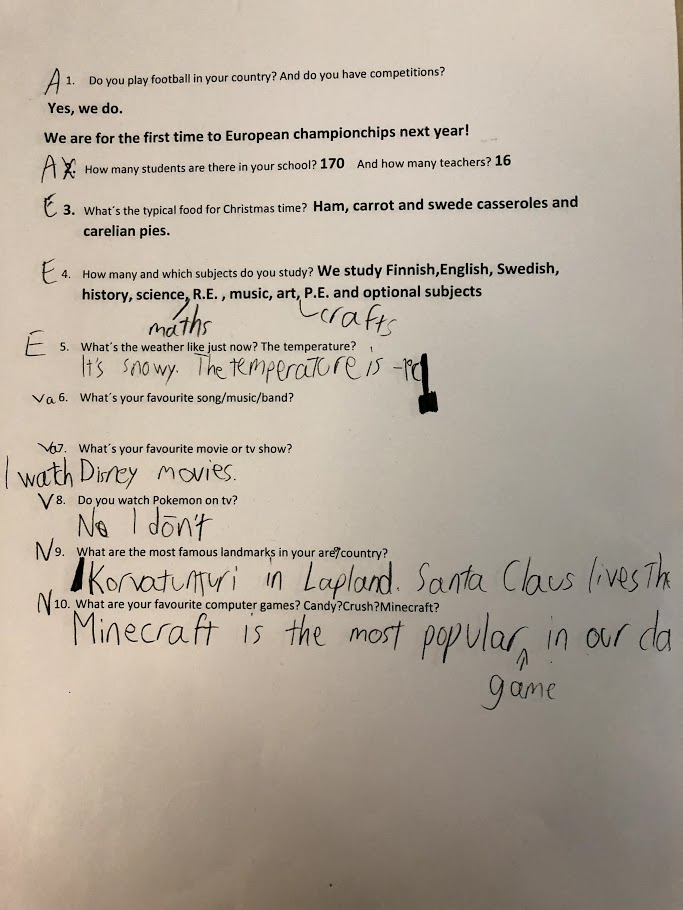 A 1. Do you play football in your country? And do you have competitions?
Yes, we do.
We are for the first time to European championchips next year!
A 2. How many students are there in your school? 170 And how many teachers? 16
E 3. What´s the typical food for Christmas time? Ham, carrot and swede casseroles and
carelian pies.
E 4. How many and which subjects do you study? We study Finnish,English, Swedish,
history, science, R.E. , music, art, P.E. and optional subjects
maths crafts
E 5. What's the weather like just now? The temperature?
It's snowy. The temperature is
Va 6. What's your favourite song/music/band?
Va 7. What´s your favourite movie or tv show?
I wath Disney movies.
V 8. Do you watch Pokemon on tv?
No I don't
N 9. What are the most famous landmarks in your are?country?
Korvatunturi in Lapland. Santa Claus lives The
N 10. What are your favourite computer games? Candy?Crush?Minecraft?
Minecraft is the most popular in our da
game